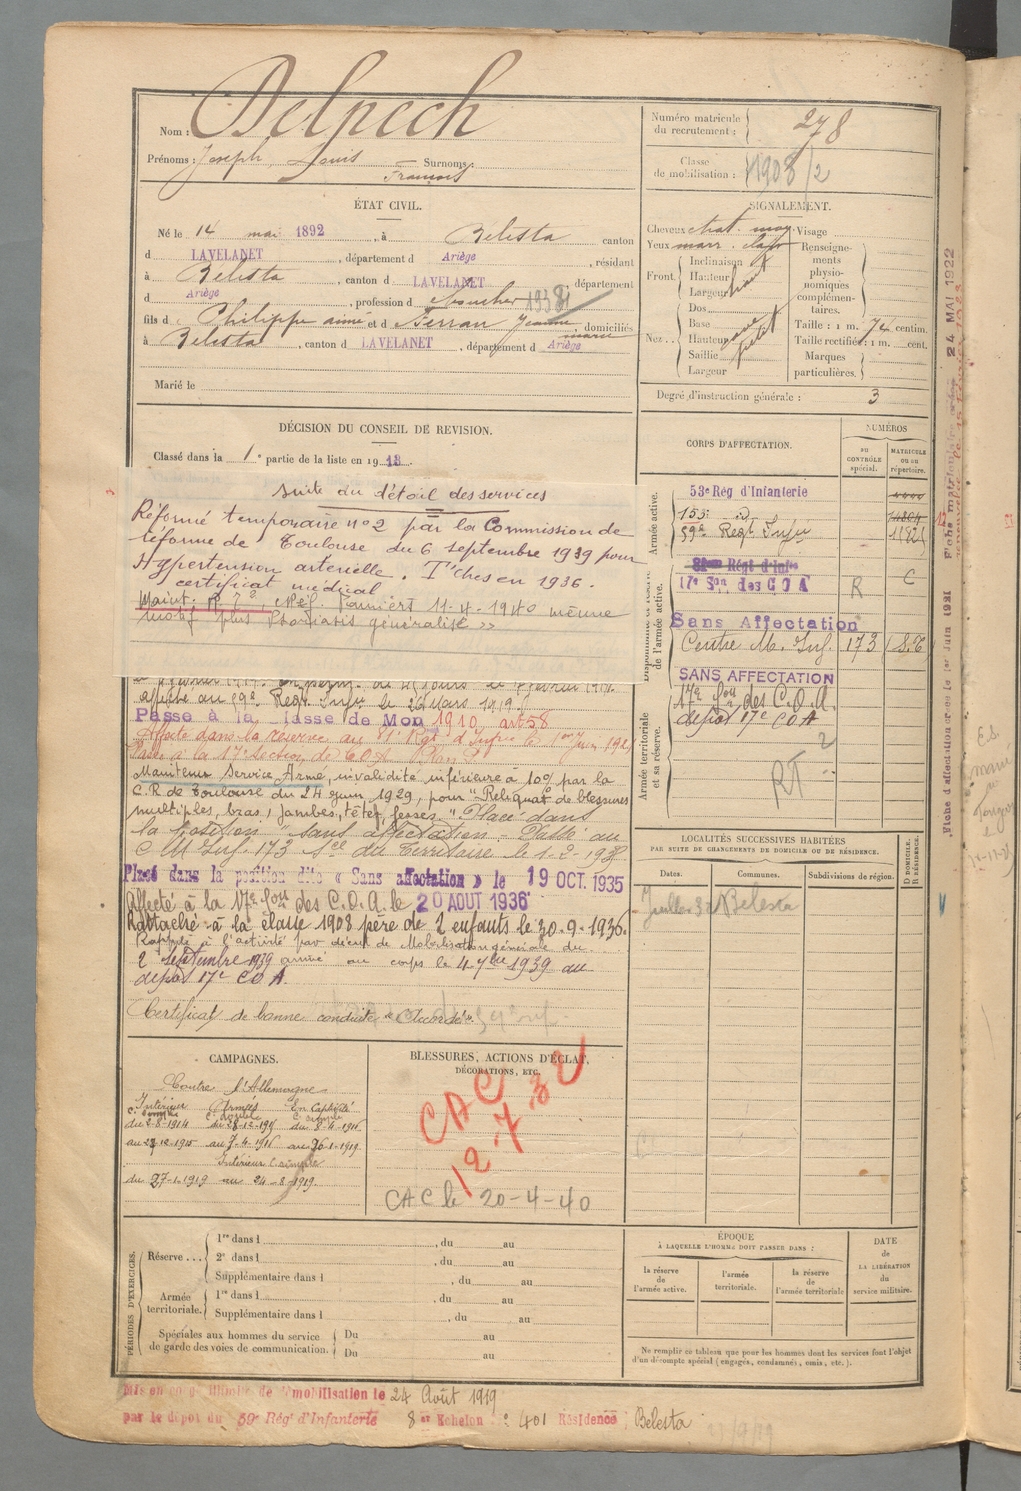 Nom : Delpech
Prénoms : Joseph Louis François Surnoms :
Numéro matricule du recrutement : 278
Classe de mobilisation : 1908/2
ÉTAT CIVIL.
Né le 14 mai 1892, à Bélesta canton
d LAVELANET, département d Ariège, résidant
à Belesta, canton d LAVELANET, département
d Ariège, profession de boucher 1938
fils d Philippe aimé et d Ferran Jeanne marie, domiciliés
à Belesta, canton d LAVELANET, département d Ariège
Marié le
SIGNALEMENT.
Cheveux chat. moy.
Yeux marr. clair
Front.
Inclinaison
Hauteur haut
Largeur
Nez..
Dos
Base
Hauteur
Saillie
Largeur
Visage
Renseignements physionomiques complémentaires.
Taille : 1 m. 74 centim.
Taille rectifiée : 1 m. cent.
Marques particulières.
Degré d'instruction générale : 3
DÉCISION DU CONSEIL DE REVISION.
Classé dans la 1e partie de la liste en 1913.
suite du détail des services
Réformé temporaire n°2 par la Commission de
réforme de Toulouse du 6 septembre 1939 pour
Hypertension arterielle. T. ches en 1936.
certificat médical
Maint. R. T. 2, C. Réf. Pamiers 11-4-1940 même
motif plus Psoriasis généralisé »
affecté au 59e Regt Infie le 26 Mars 1919.
Passé à la classe de Mon 1910, art 58
Affecté dans la réserve au 81e Régt d'Infie le 1er Juin 1921
Passé à la 17e section de C.O.A. Plan
Maintenu Service Armé, invalidité inférieure à 10% par la
C.R de Toulouse du 24 juin 1929, pour "Reliquat de blessures
multiples, bras, jambes, tête, fesses." Placé dans
la position "sans affectation". Passé au
C M Inf. 173 Sce du Territoire le 1-2-193
Placé dans la position dite « Sans affectation » le 19 OCT. 1935
Affecté à la 17e Son des C.O.A. le 20 AOUT 1936
Rattaché à la classe 1908 père de 2 enfants le 30-9-1936
Rappelé à l'activité par décret de Mobilisation générale du
2 septembre 1939 arrivé au corps le 4 7bre 1939 au
dépôt 17e C.O.A.
Certificat de bonne conduite "Accordé".
CORPS D'AFFECTATION.
NUMÉROS
AU CONTRÔLE spécial.
MATRICULE OU AU répertoire.
Armée active.
53e Rég d'Infanterie
153e d°
59e Regt Infie
Disponibilité et réserve de l'armée active.
81e Régt d'Infie
17e Son des C O A R C
Sans Affectation
Centre M. Inf. 173 S.T
SANS AFFECTATION
Armée territoriale et sa réserve.
17e Son des C.O.A.
dépot 17e COA
RT 2
LOCALITÉS SUCCESSIVES HABITÉES
PAR SUITE DE CHANGEMENTS DE DOMICILE OU DE RÉSIDENCE.
Dates.
Communes.
Subdivisions de région.
D DOMICILE. R RÉSIDENCE.
Juillet 32 Belesta
CAMPAGNES.
Contre l'Allemagne
Intérieur Armées En Captivité
C. simple C. double C. simple
du 2-8-1914 du 28-12-1915 du 8-4-1916
au 27-12-1915 au 7-4-1916 au 26-1-1919.
Intérieur C. simple
du 27-1-1919 au 24-8-1919.
BLESSURES, ACTIONS D'ÉCLAT,
DÉCORATIONS, ETC.
CAC
12.7.32
CAC le 20-4-40
PÉRIODES D'EXERCICES.
Réserve...
1re dans l , du au
2e dans l , du au
Supplémentaire dans l , du au
Armée territoriale.
1re dans l , du au
Supplémentaire dans l , du au
Spéciales aux hommes du service de garde des voies de communication.
Du au
Du au
ÉPOQUE
À LAQUELLE L'HOMME DOIT PASSER DANS :
la réserve de l'armée active.
l'armée territoriale.
la réserve de l'armée territoriale
DATE de LA LIBÉRATION du service militaire.
Ne remplir ce tableau que pour les hommes dont les services font l'objet
d'un décompte spécial (engagés, condamnés, omis, etc.).
Mis en congé illimité de démobilisation le 24 Août 1919
par le dépôt du 59e Rég' d'Infanterie 8er Echelon n° 401 Résidence : Belesta
Fiche d'affectation créée le 1er Juin 1921
Fiche matricule 24 MAI 1922